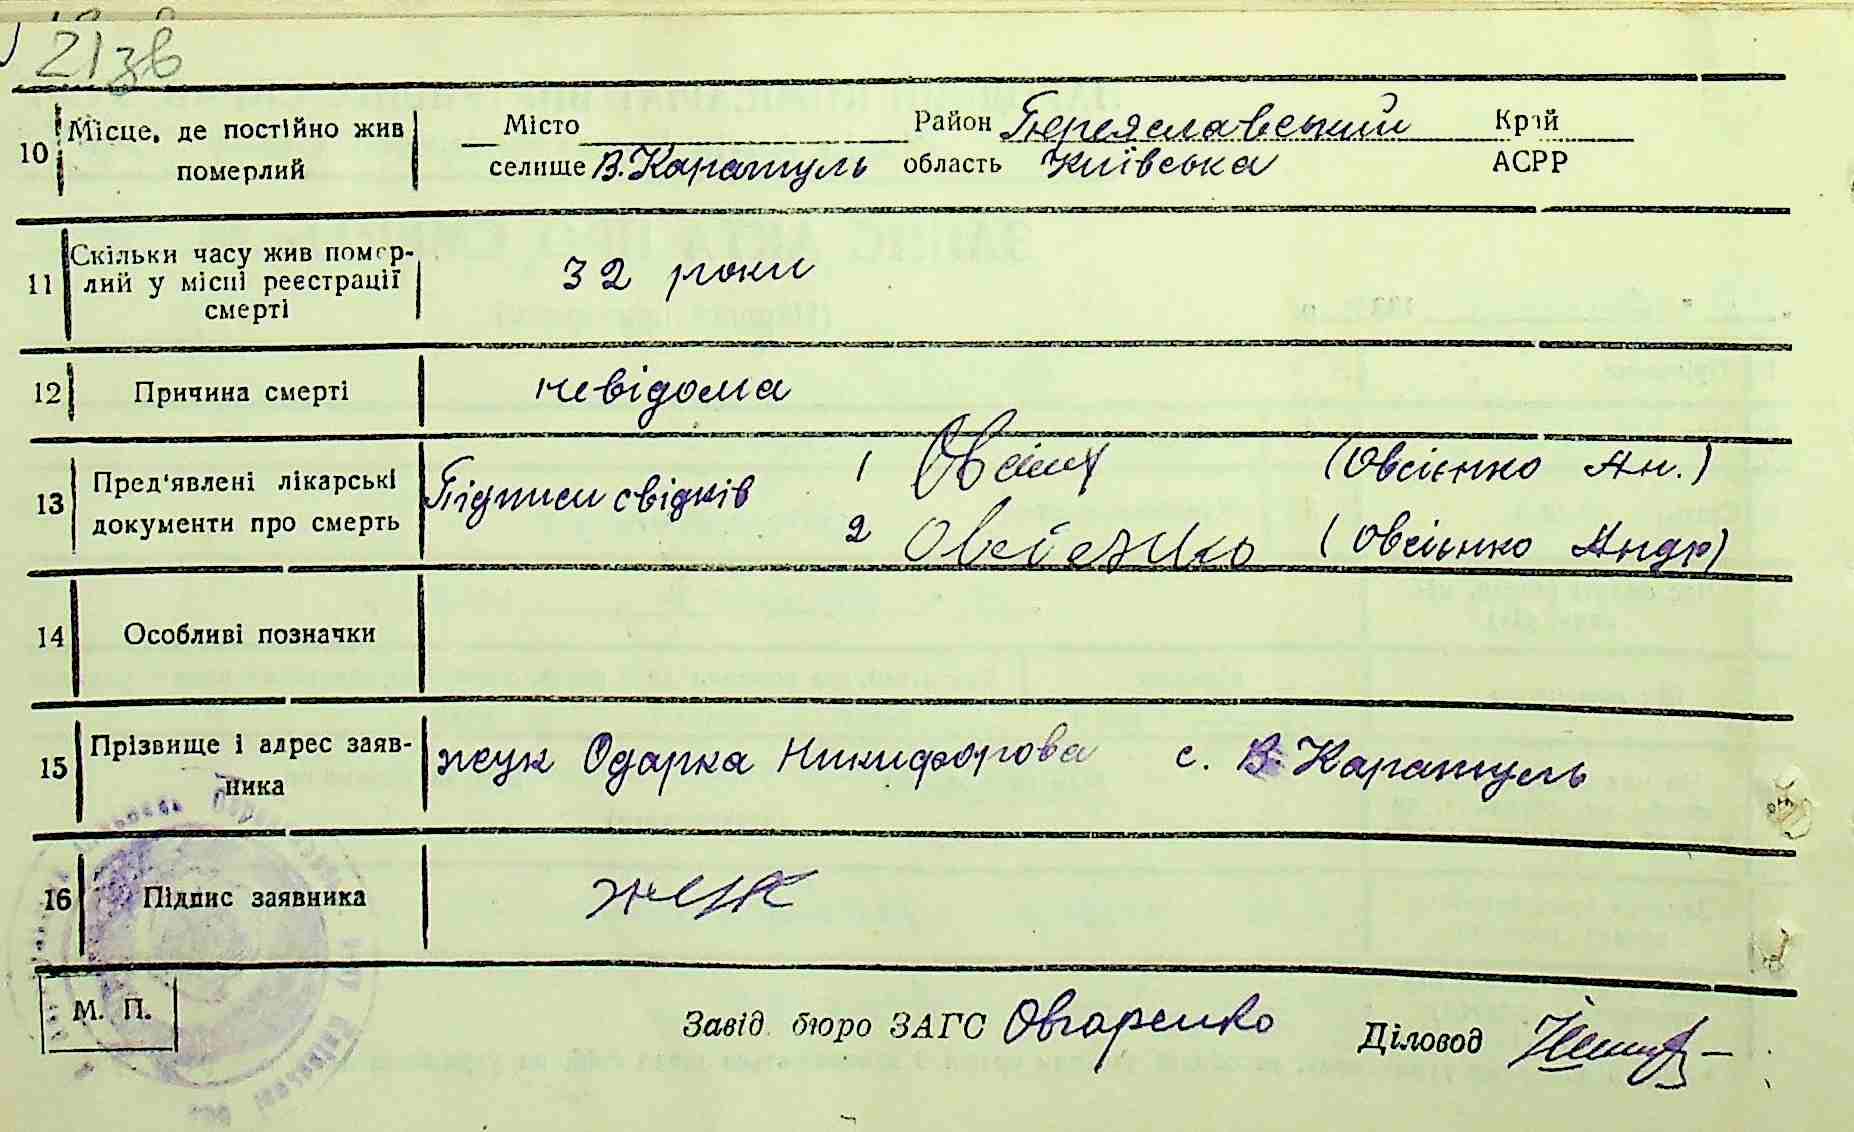 21зв
10 Місце, де постійно жив померлий
Місто Район Переяславський Край
селище В.Каратуль область Київська АСРР
11 Скільки часу жив померлий у місці реєстрації смерті
32 роки
12 Причина смерті невідома
13 Пред'явлені лікарські документи про смерть
Підписи свідків 1 (Овсієнко Ан.)
2 Овсієнко (Овсієнко Андр)
14 Особливі позначки
15 Прізвище і адрес заявника
жук Одарка Никифорова с. В. Каратуль
16 Підпис заявника жук
М. П.
Завід. бюро ЗАГС Овчаренко Діловод